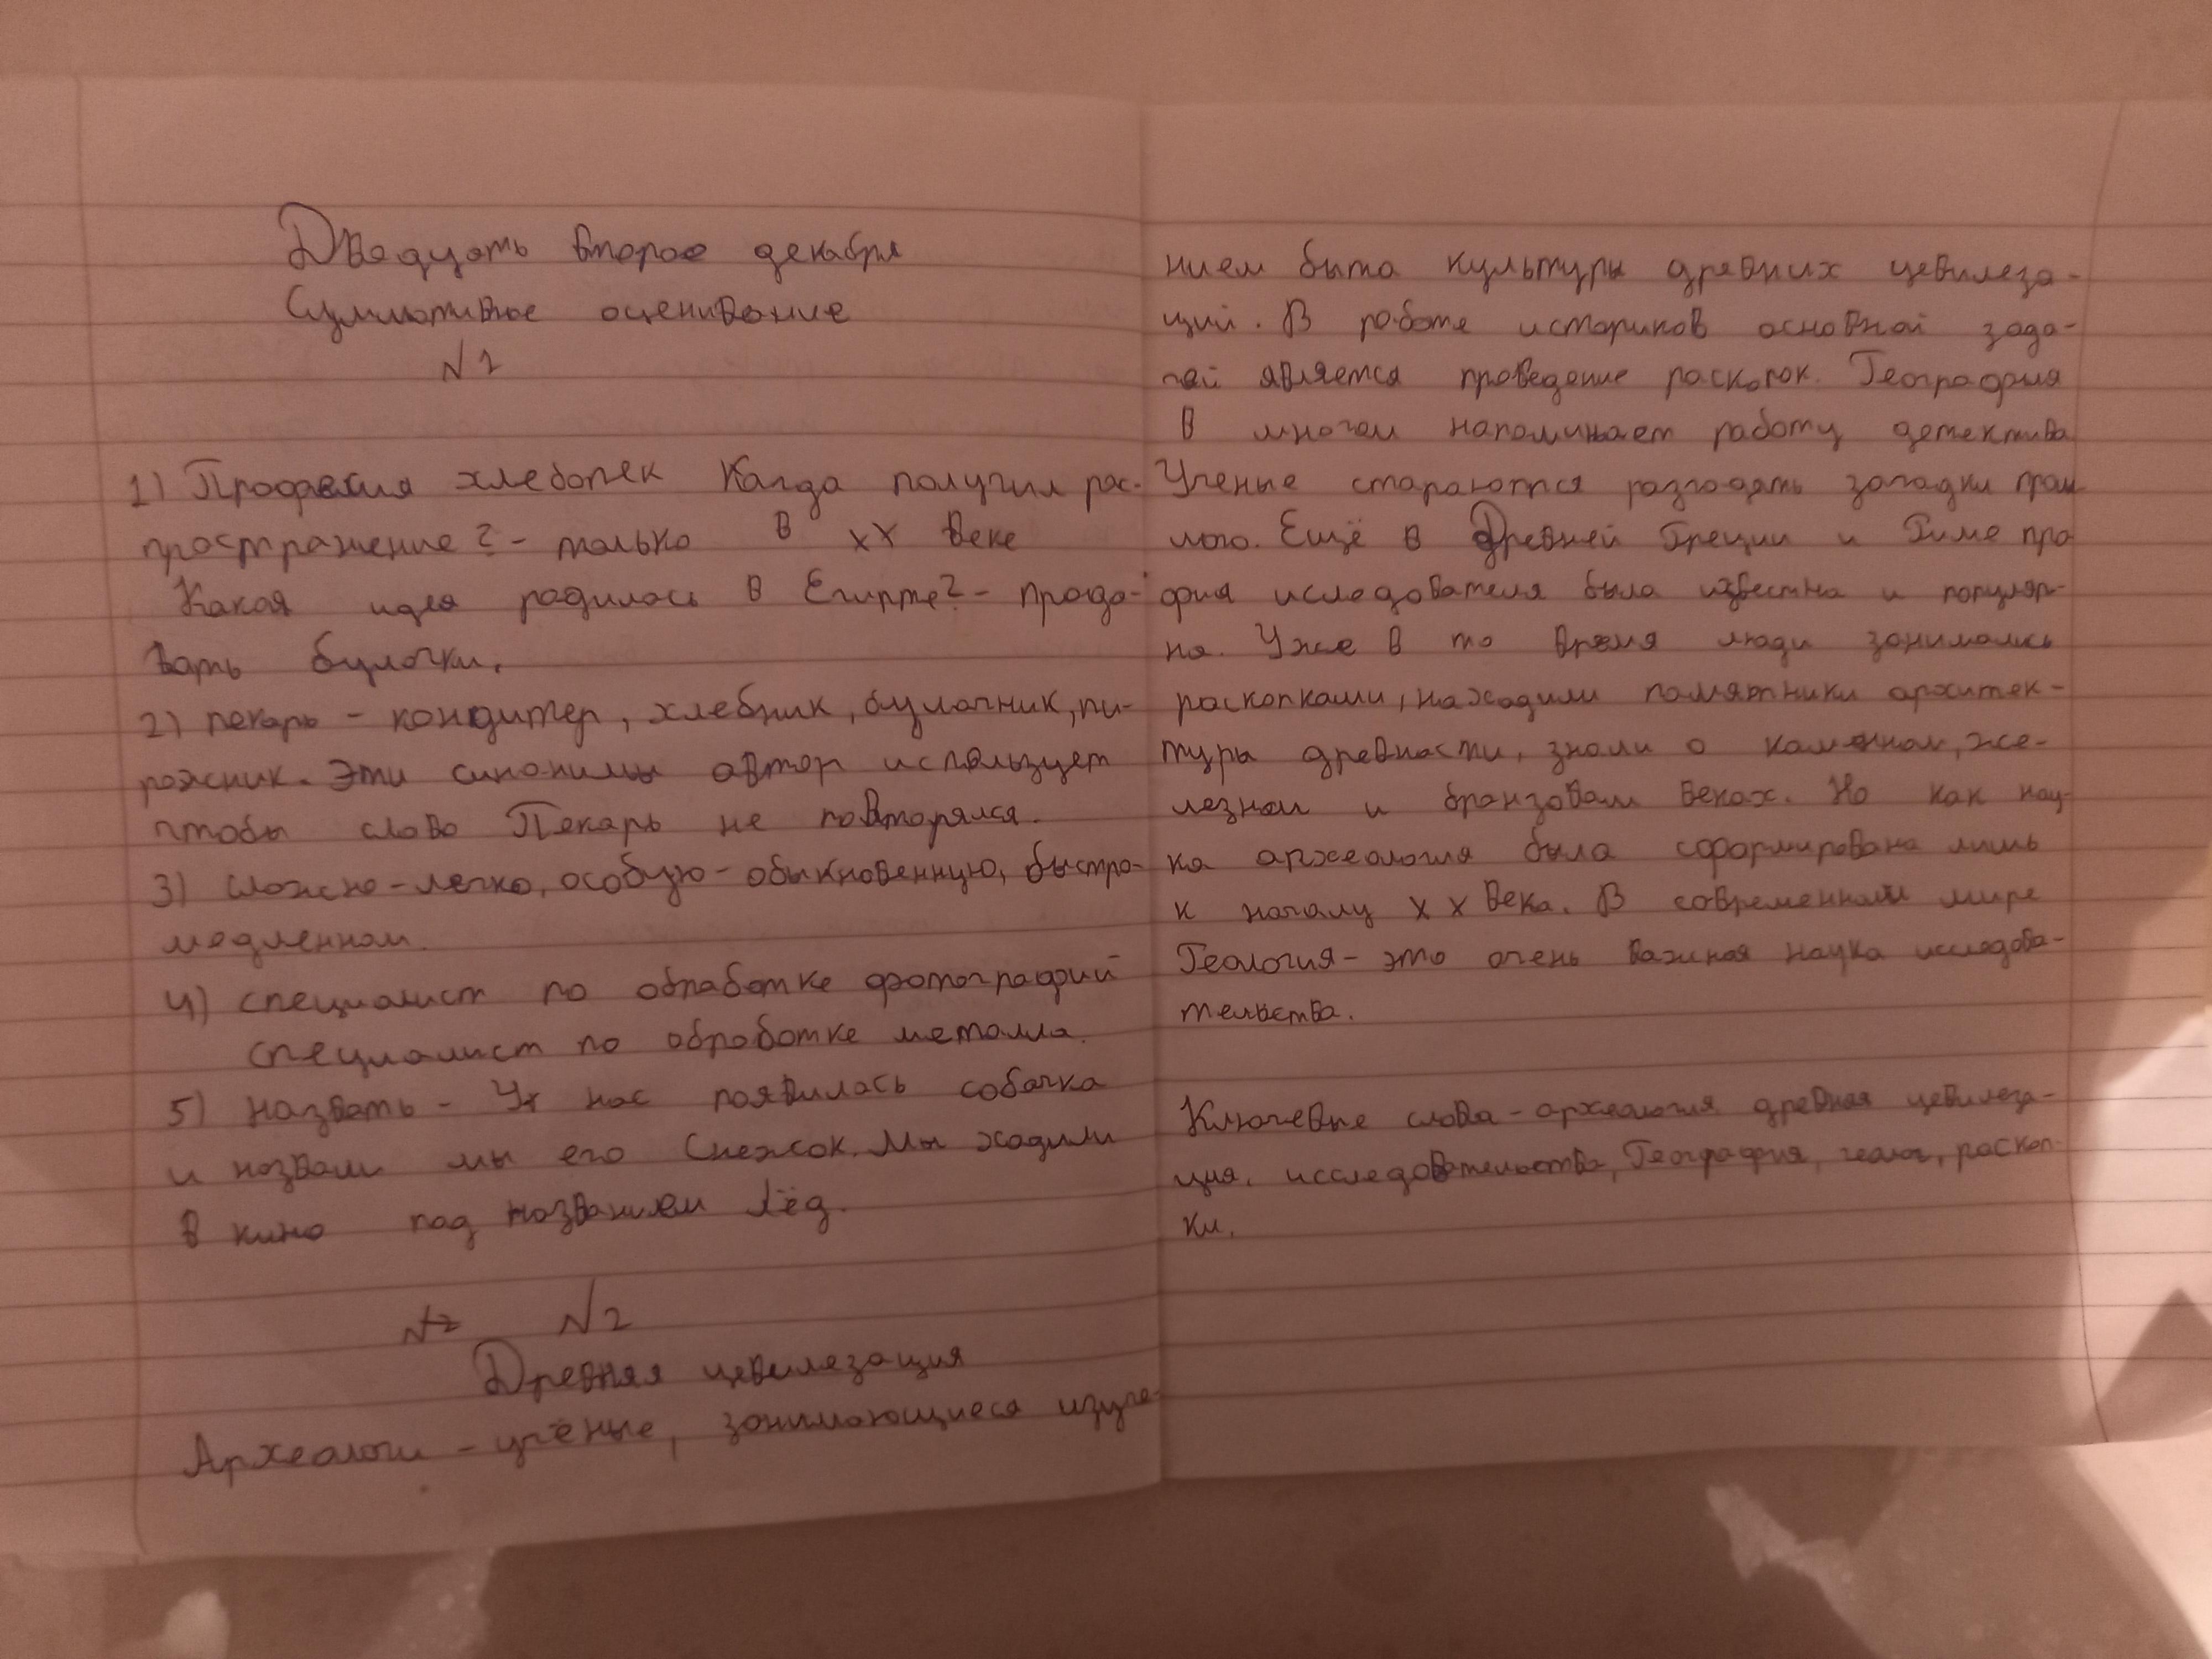 Двадцать второе декабря
Суммативное оценивание
№1
1) Профессия хлебопек Когда получил рас-
простражение? - только в XX веке
Какая идея родилась в Египте? - прода-
вать булочки.
2) пекарь - кондитер, хлебник, булочник, пи-
рожник. Эти синонимы автор использует
чтобы слово Пекарь не повторялся.
3) сложно - легко, особую - обыкновенную, быстро-
медленном.
4) специалист по обработке фотографий
специалист по обработке металла.
5) назвать - У нас появилась собачка
и назвали мы его Снежок. Мы ходили
в кино под названием Лёд.
№2 №2
Древняя цевилезация
Археологи - учёные, занимающиеся изуче-
нием быта культуры древних цевилеза-
ций. В работе историков основной зада-
чей является проведение раскопок. География
в многом напоминает работу детектива
Ученые стараются разгадать загадки прош
лого. Ещё в Древней Греции и Риме про
фия иследователя была известна и популяр-
на. Уже в то время люди занимались
раскопками, находили памятники архитек-
туры древности, знали о каменном, же-
лезном и бронзовом веках. Но как нау-
ка археология была сформирована лишь
к началу XX века. В современном мире
Геология - это очень важная наука исследова-
тельства.
Ключевые слова - археология древная цевилеза-
ция, исследовательства, География, геолог, раскоп-
ки.